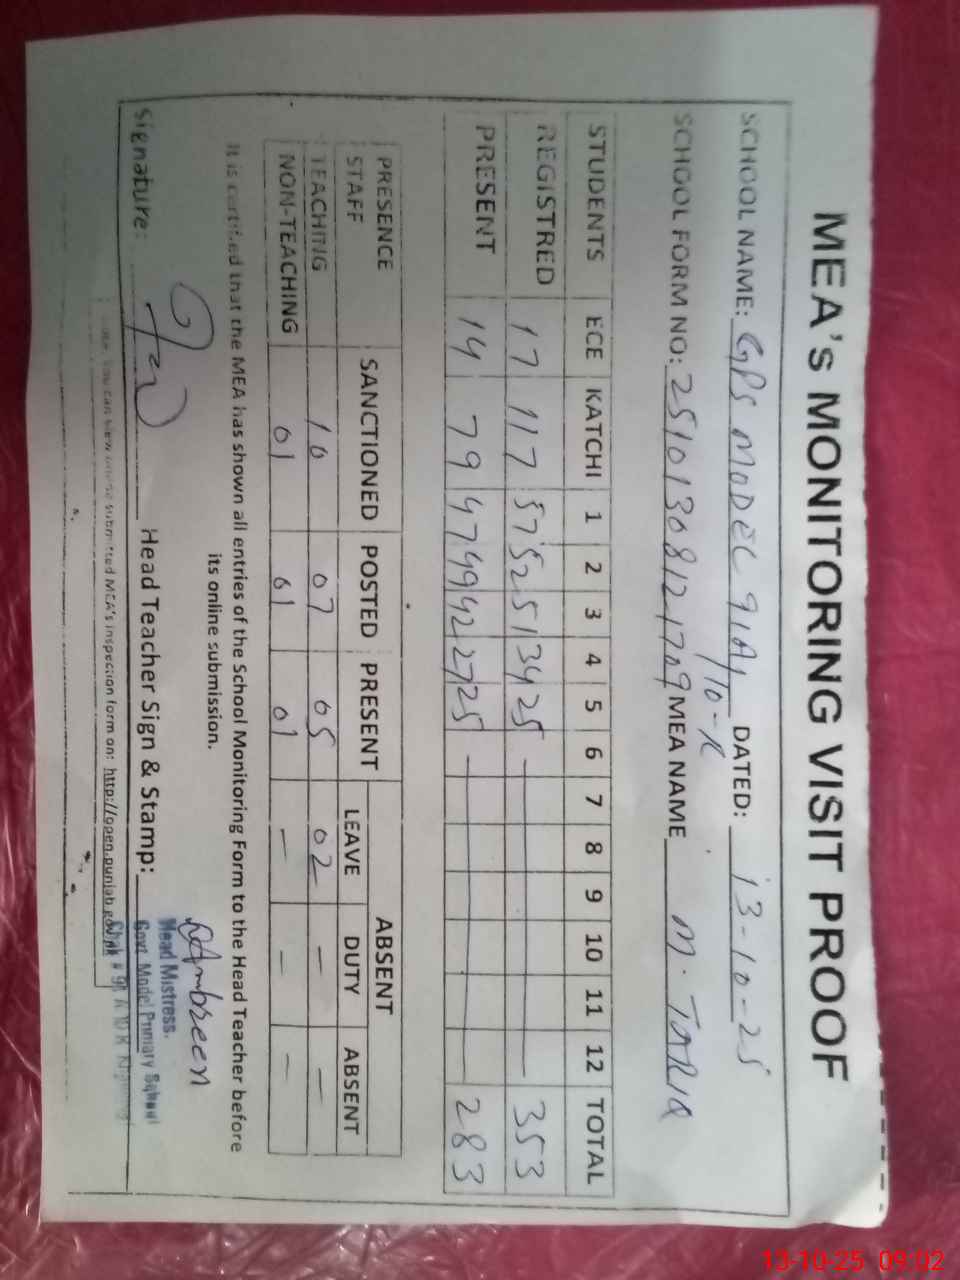 MEA's MONITORING VISIT PROOF
SCHOOL NAME: GPS MODEL 91A/10-R DATED: 13-10-25
SCHOOL FORM NO: 25101308121709 MEA NAME M. TARIQ
STUDENTS ECE KATCHI 1 2 3 4 5 6 7 8 9 10 11 12 TOTAL
REGISTRED 17 117 57 52 51 34 25 — 353
PRESENT 14 79 47 49 42 27 25 — 283
PRESENCE STAFF SANCTIONED POSTED PRESENT ABSENT
LEAVE DUTY ABSENT
TEACHING 10 07 05 02 — —
NON-TEACHING 01 01 01 — — —
It is certified that the MEA has shown all entries of the School Monitoring Form to the Head Teacher before
its online submission.
Signature: Head Teacher Sign & Stamp: Ambreen
Head Mistress.
Govt. Model Primary School
Chak # 91 A 10 R
You can view online submitted MEA's inspection form on: http://open.punjab.gov.pk
13-10-25 09:02